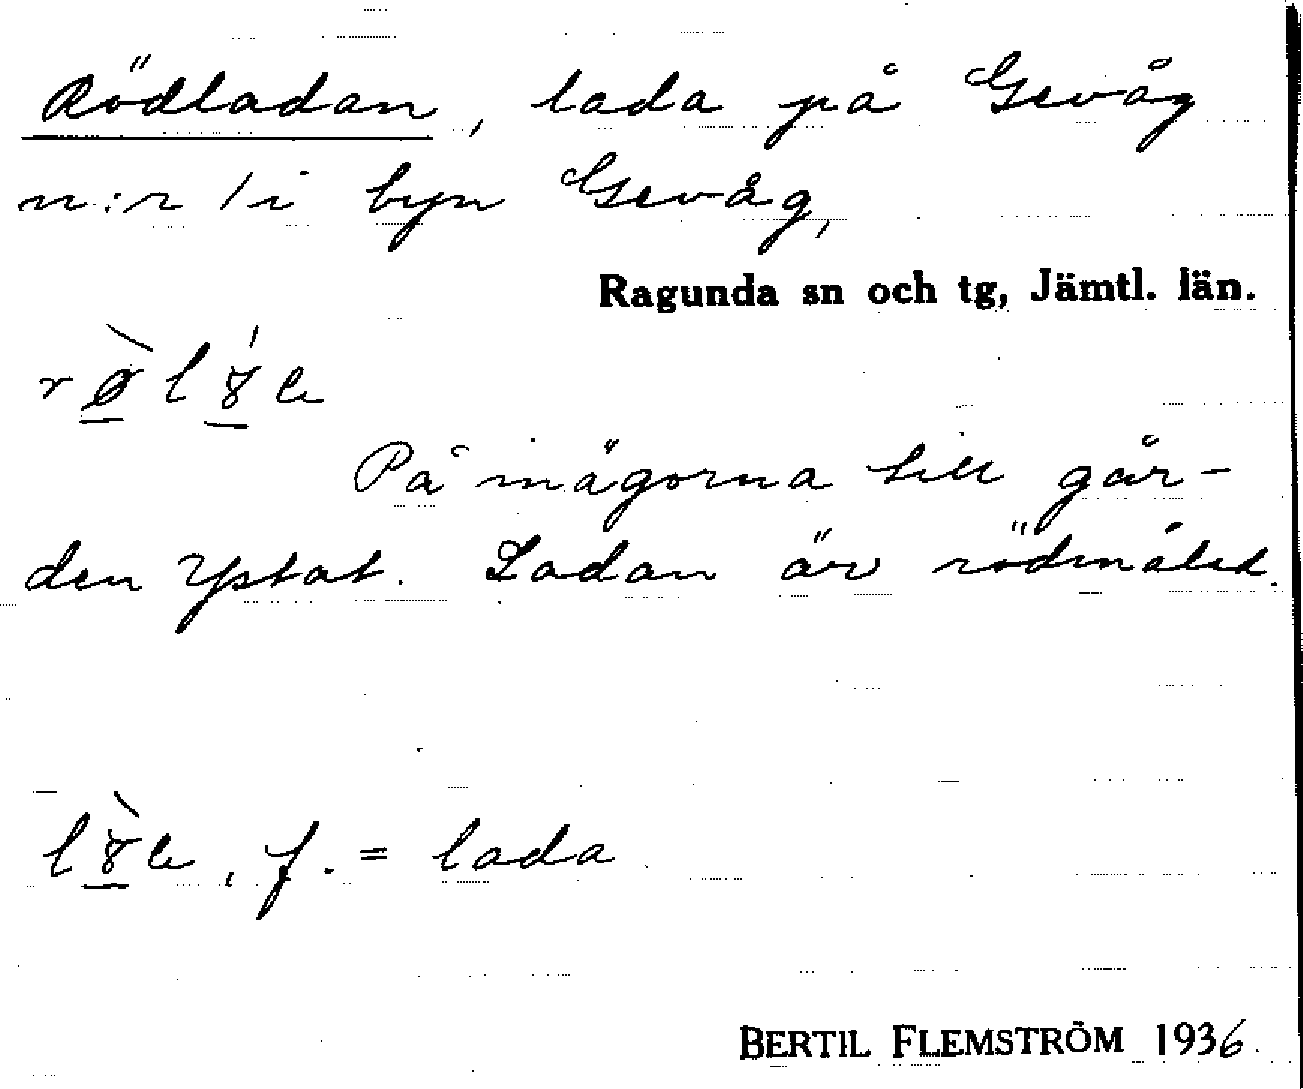 Rödladan, lada på Gevåg
n:r 1 i byn Gevåg,
Ragunda sn och tg, Jämtl. län.
På mägorna till går-
den Ystat. Ladan är rödmålad.
f. = lada
BERTIL FLEMSTRÖM 1936